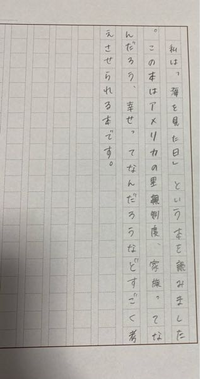 私は、「海を見た日」という本を読みました
。この本はアメリカの里親制度、家族ってな
んだろう、幸せってなんだろうなどすごく考
えさせられる本です。